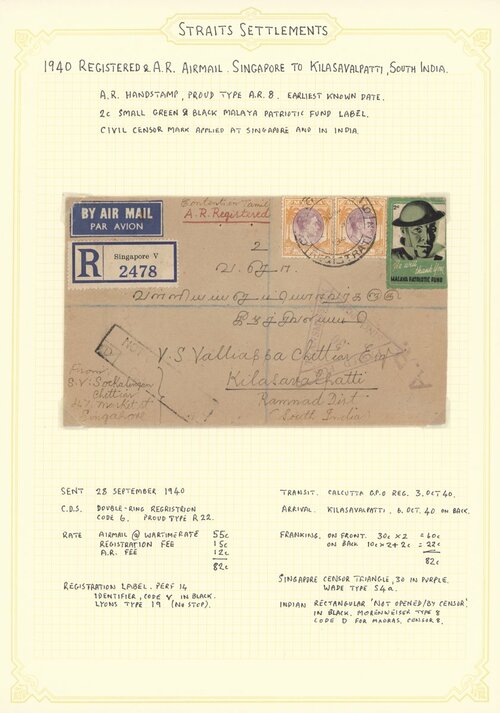 STRAITS SETTLEMENTS
1940 REGISTERED & A.R. AIRMAIL. SINGAPORE TO KILASAVALPATTI, SOUTH INDIA.
A.R. HANDSTAMP, PROUD TYPE A.R.8. EARLIEST KNOWN DATE.
2c SMALL GREEN & BLACK MALAYA PATRIOTIC FUND LABEL.
CIVIL CENSOR MARK APPLIED AT SINGAPORE AND IN INDIA.
Contention Tamil
A.R. Registered
BY AIR MAIL
PAR AVION
R
Singapore V
2478
2c
We will thank you!
MALAYA PATRIOTIC FUND
உ
வ. சோ.
வள்ளியப்ப செட்டியார்
V.S. Valliappa Chettiar Esq
Kilasavalpatti
Ramnad Dist
(South India)
NOT
D
From
S.V. Sockalingam
Chettiar
Market St
Singapore
SENT 28 SEPTEMBER 1940
C.D.S. DOUBLE-RING REGRISTRION
CODE G. PROUD TYPE R22.
RATE AIRMAIL @ WARTIME RATE 55c
REGISTRATION FEE 15c
A.R. FEE 12c
82c
REGISTRATION LABEL. PERF 14
IDENTIFIER, CODE V IN BLACK.
LYONS TYPE 19 (NO STOP).
TRANSIT. CALCUTTA G.P.O REG. 3. OCT 40.
ARRIVAL. KILASAVALPATTI. 6. OCT. 40 ON BACK.
FRANKING. ON FRONT. 30c x 2 = 60c
ON BACK 10c x 2 + 2c = 22c
82c
SINGAPORE CENSOR TRIANGLE, 30 IN PURPLE.
WADE TYPE S4a.
INDIAN RECTANGULAR 'NOT OPENED/BY CENSOR'
IN BLACK. MORENWEISER TYPE 8
CODE D FOR MADRAS. CENSOR 8.